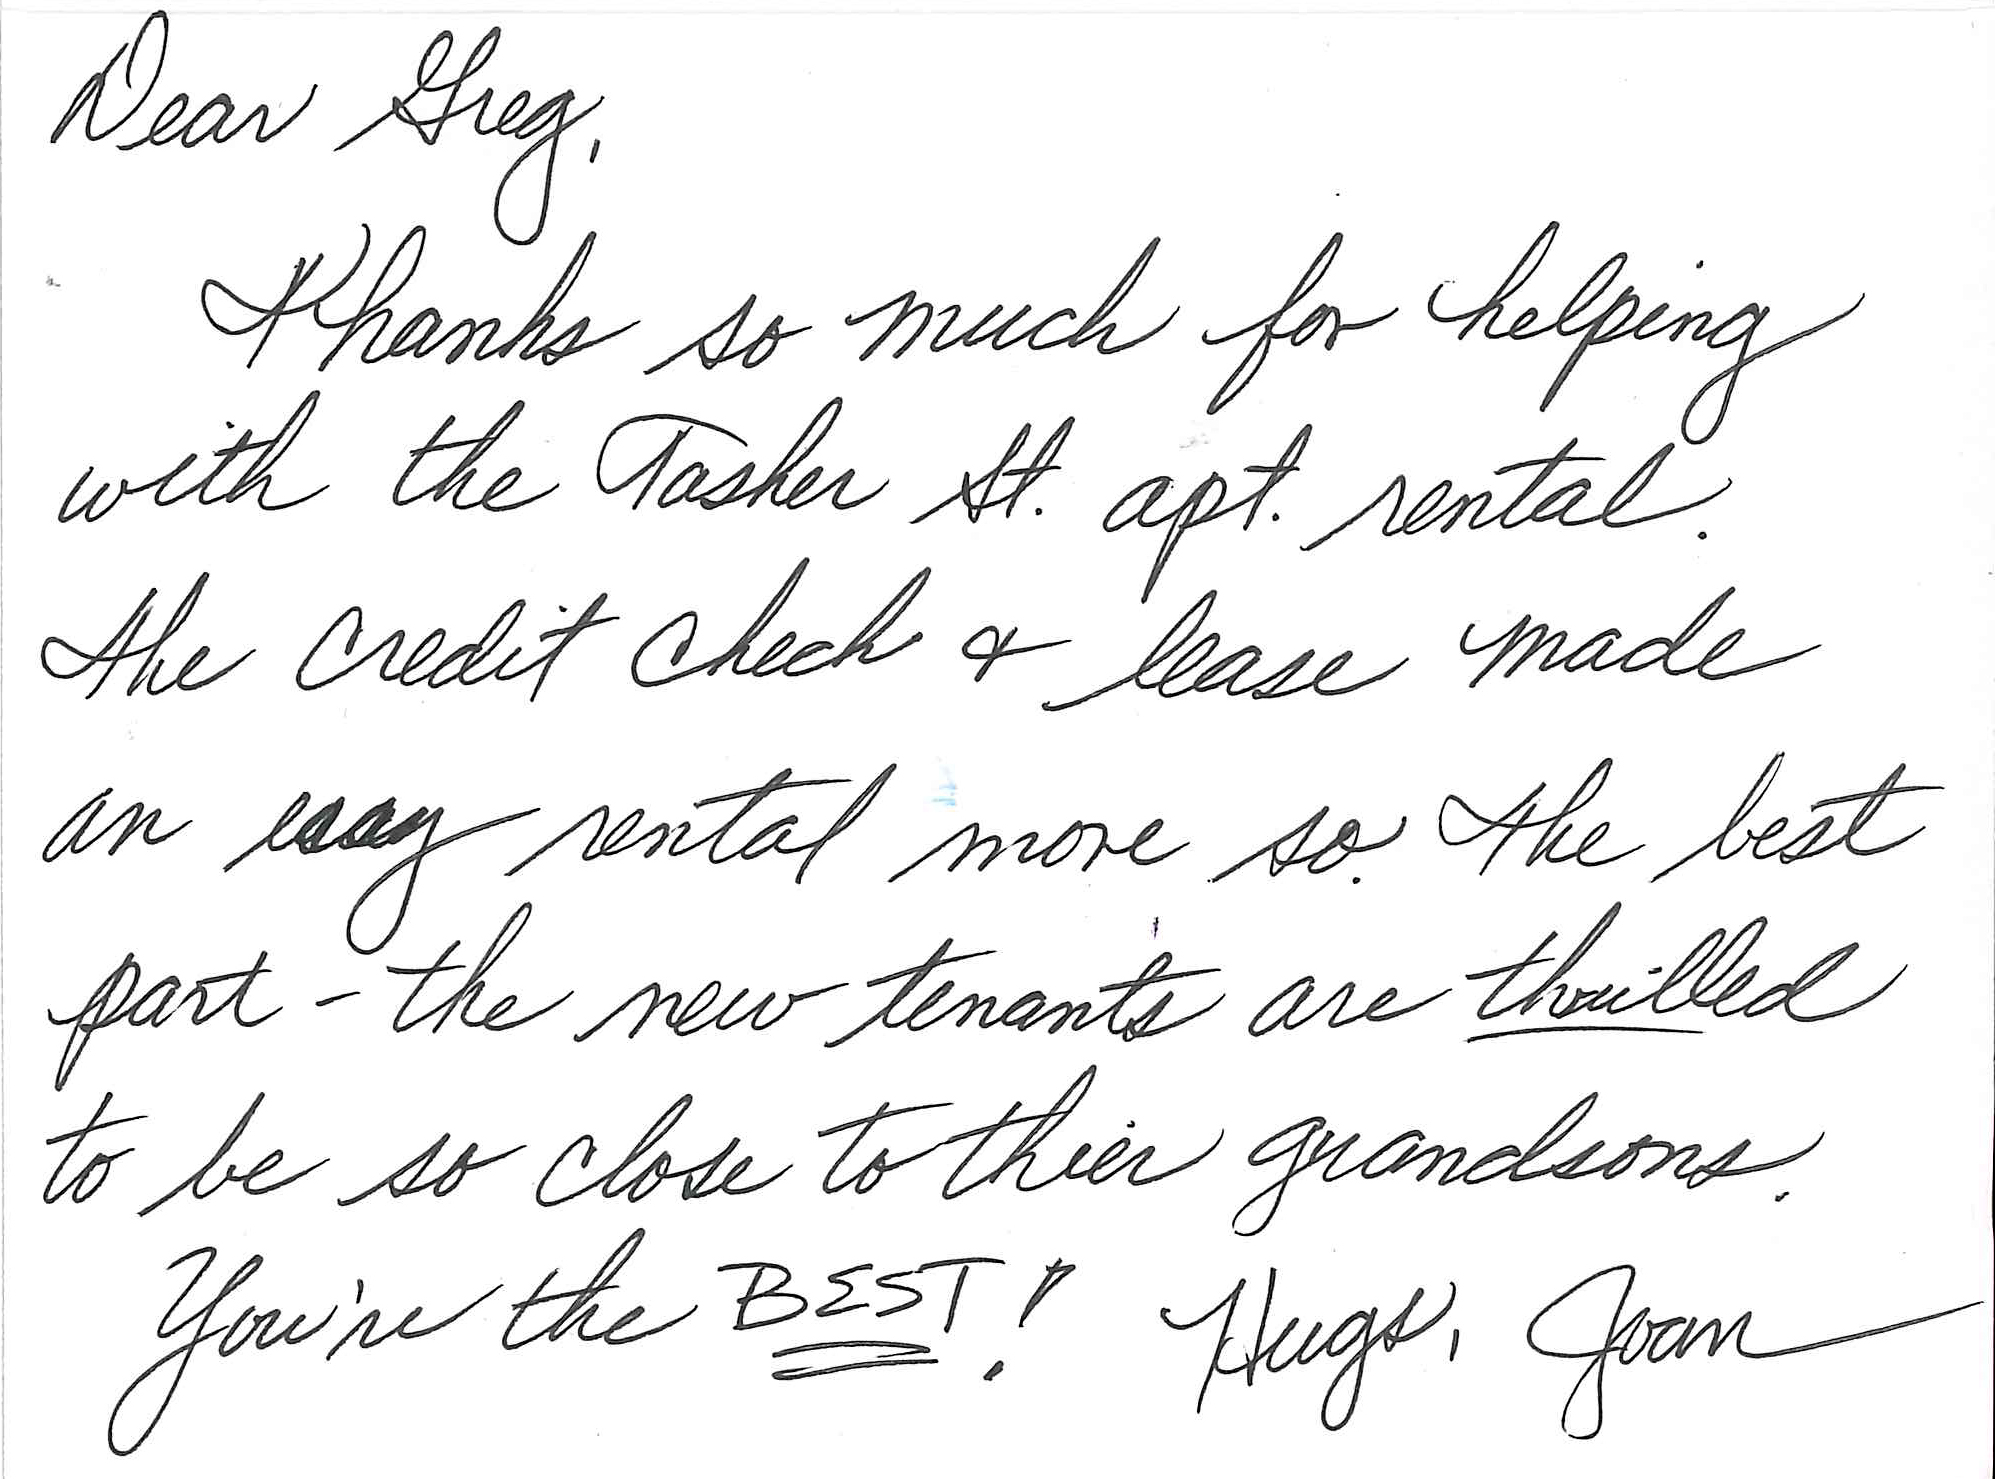 Dear Greg,
Thanks so much for helping
with the Tasker St. apt. rental.
the credit check & lease made
an easy rental more so. the best
part - the new tenants are thrilled
to be so close to thier grandsons.
You're the BEST! Hugs, Joan